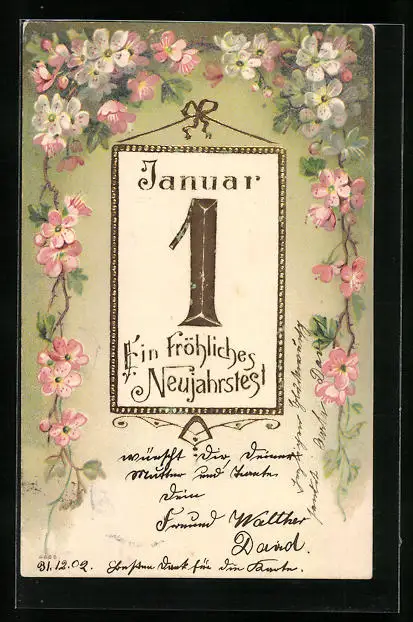 Januar
1
Ein fröhliches
Neujahrsfest
wünscht Dir, Deiner
Mutter und Tante
Dein
Freund Walther
David.
31.12.02. Besten Dank für die Karte.